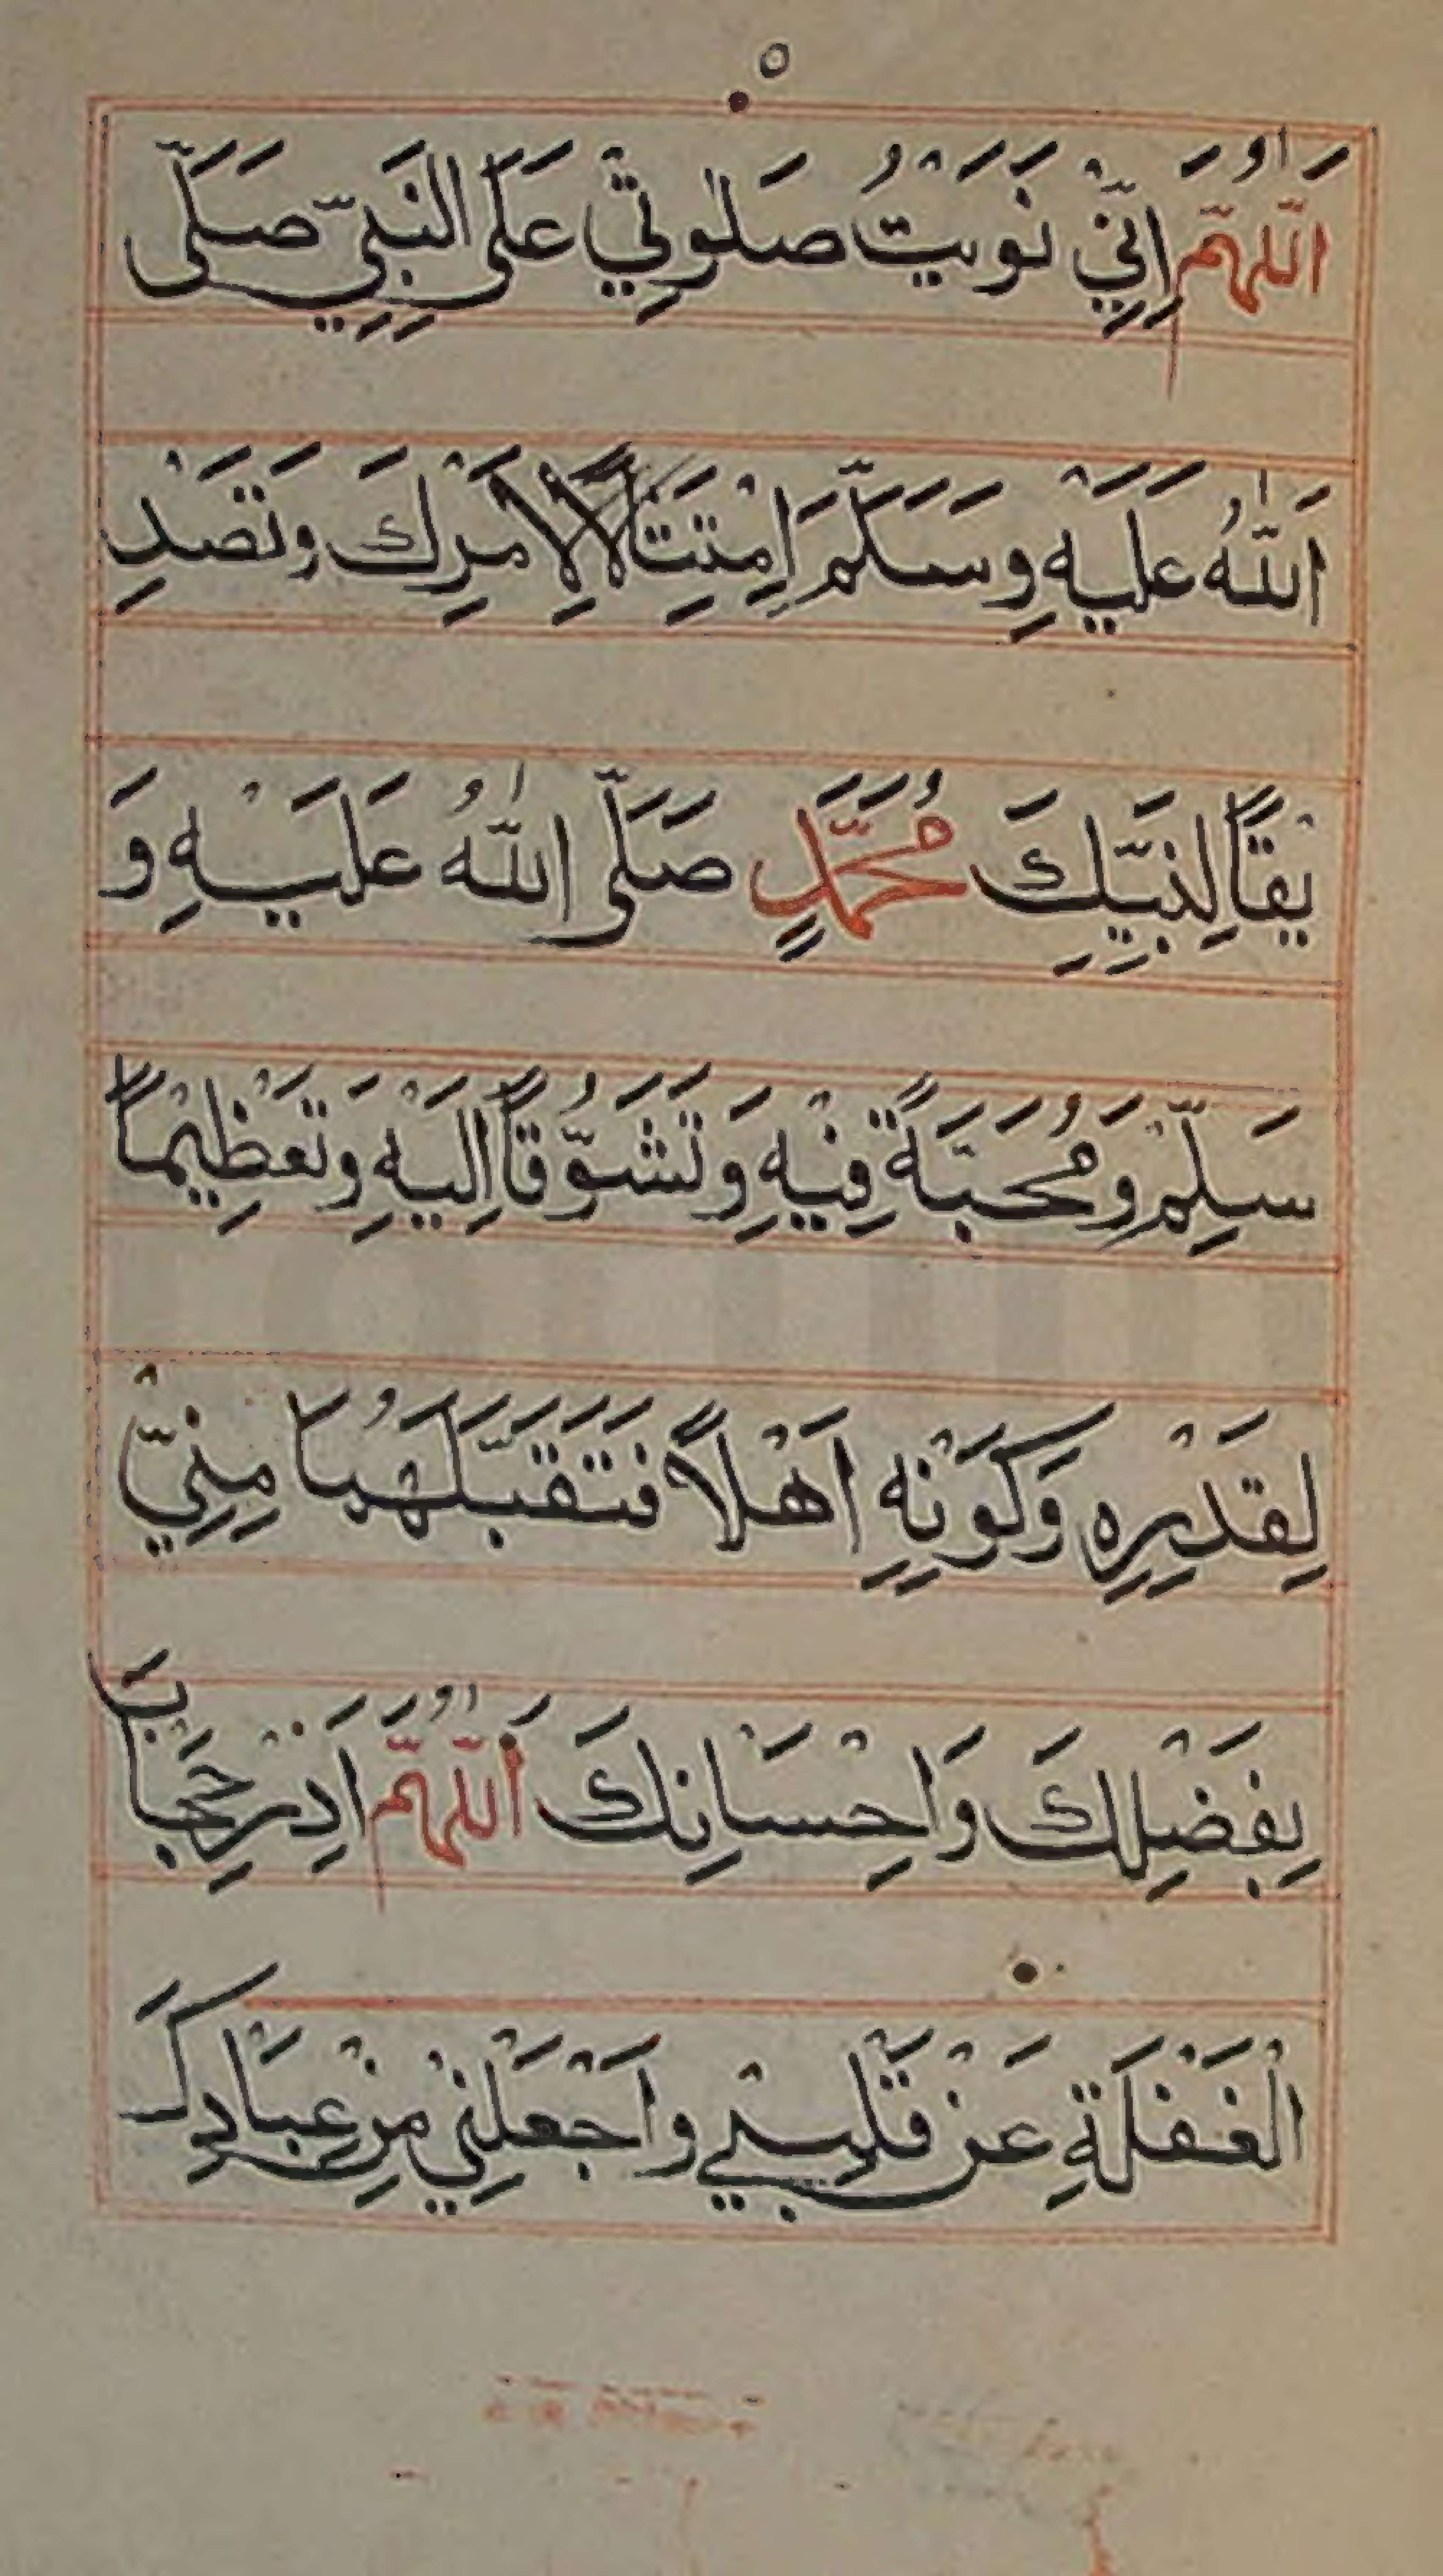 ٥
اَللّٰهُمَّ اِنِّي نَوَيْتُ صَلٰوتِي عَلَى النَّبِيِّ صَلَّى
اَللّٰهُ عَلَيْهِ وَسَلَّمَ اِمْتِتَالًا لِاَمْرِكَ وَتَصْدِ
يْقًا لِنَبِيِّكَ مُحَمَّدٍ صَلَّى اللّٰهُ عَلَيْهِ وَ
سَلِّمْ وَمُحَبَّةً فِيْهِ وَتَشَوُّقًا اِلَيْهِ وَتَعْظِيْمًا
لِقَدْرِهِ وَكَوْنِهِ اَهْلًا فَتَقَبَّلْهَا مِنِّيْ
بِفَضْلِكَ وَاِحْسَانِكَ اَللّٰهُمَّ اَذِرْ حِجَابَ
الْغَفْلَةِ عَنْ قَلْبِيْ وَاجْعَلْنِيْ مِنْ عِبَادِكَ